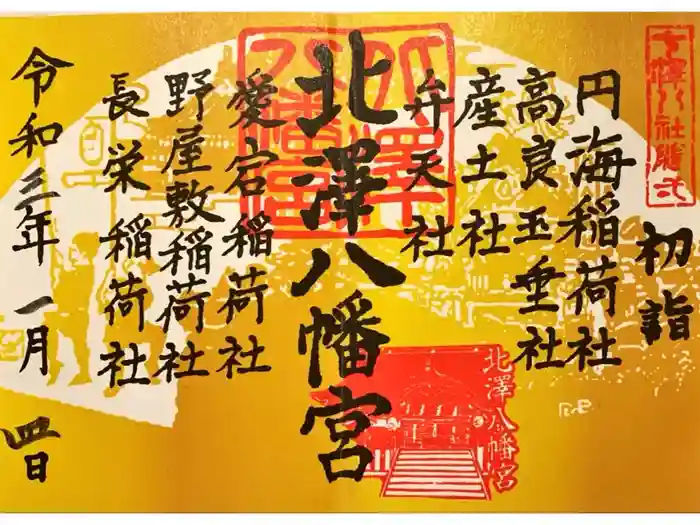 初詣
円海稲荷社
高良玉垂社
産土社
弁天社
北澤八幡宮
愛宕稲荷社
野屋敷稲荷社
長栄稲荷社
令和三年 一月 四日
北澤八幡宮
北澤八幡宮